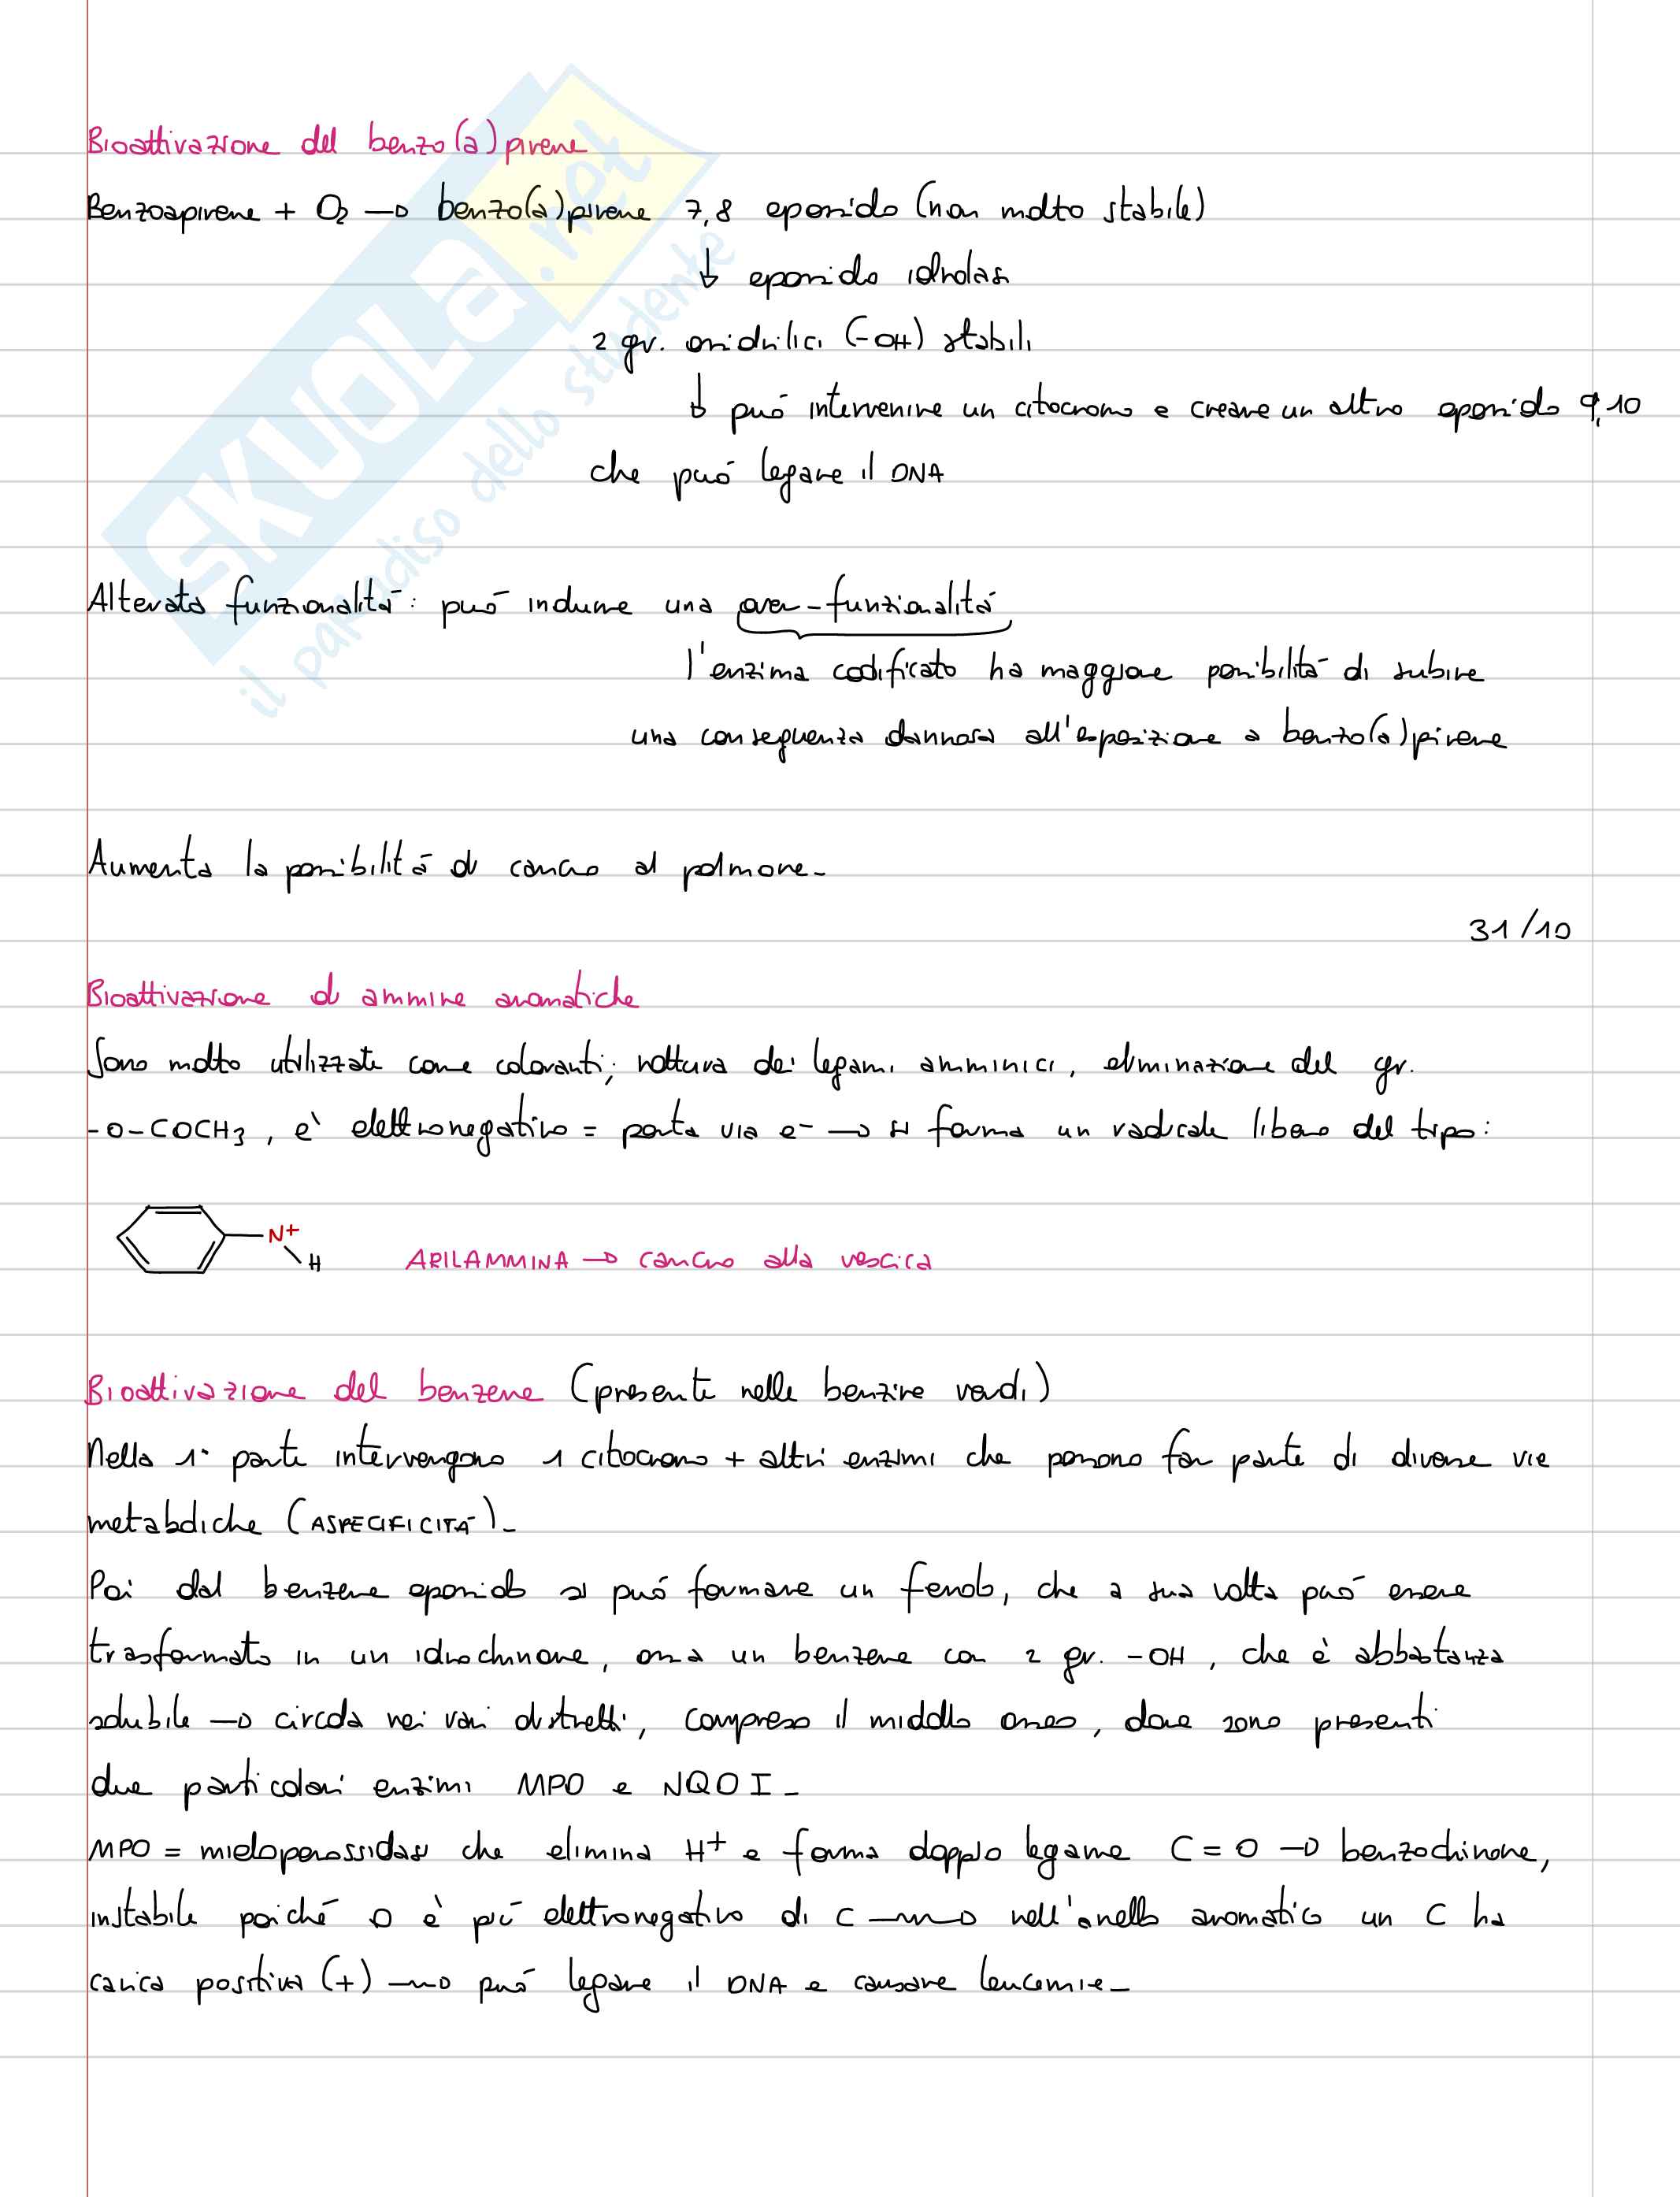 Bioattivazione del benzo(a)pirene
Benzoapirene + O2 → benzo(a)pirene 7,8 epossido (non molto stabile)
↓ epossido idrolasi
2 gr. ossidrilici (-OH) stabili
↓ può intervenire un citocromo e creare un altro epossido 9,10
che può legare il DNA
Alterata funzionalità: può indurre una over-funzionalità
l'enzima codificato ha maggiore possibilità di subire
una conseguenza dannosa all'esposizione a benzo(a)pirene
Aumenta la possibilità di cancro al polmone-
31/10
Bioattivazione di ammine aromatiche
Sono molto utilizzate come coloranti; rottura dei legami amminici, eliminazione del gr.
-O-COCH3, è elettronegativo = porta via e- → si forma un radicale libero del tipo:
N+
H
ARILAMMINA → cancro alla vescica
Bioattivazione del benzene (presente nelle benzine verdi)
Nella 1° parte intervengono 1 citocromo + altri enzimi che possono far parte di diverse vie
metaboliche (ASPECIFICITÀ)-
Poi dal benzene epossido si può formare un fenolo, che a sua volta può essere
trasformato in un idrochinone, ossia un benzene con 2 gr. -OH, che è abbastanza
solubile → circola nei vari distretti, compreso il midollo osseo, dove sono presenti
due particolari enzimi MPO e NQOI-
MPO = mieloperossidasi che elimina H+ e forma doppio legame C=O → benzochinone,
instabile poiché O è più elettronegativo di C → nell'anello aromatico un C ha
carica positiva (+) → può legare il DNA e causare leucemie-
SKUOLA.net
il paradiso dello studente